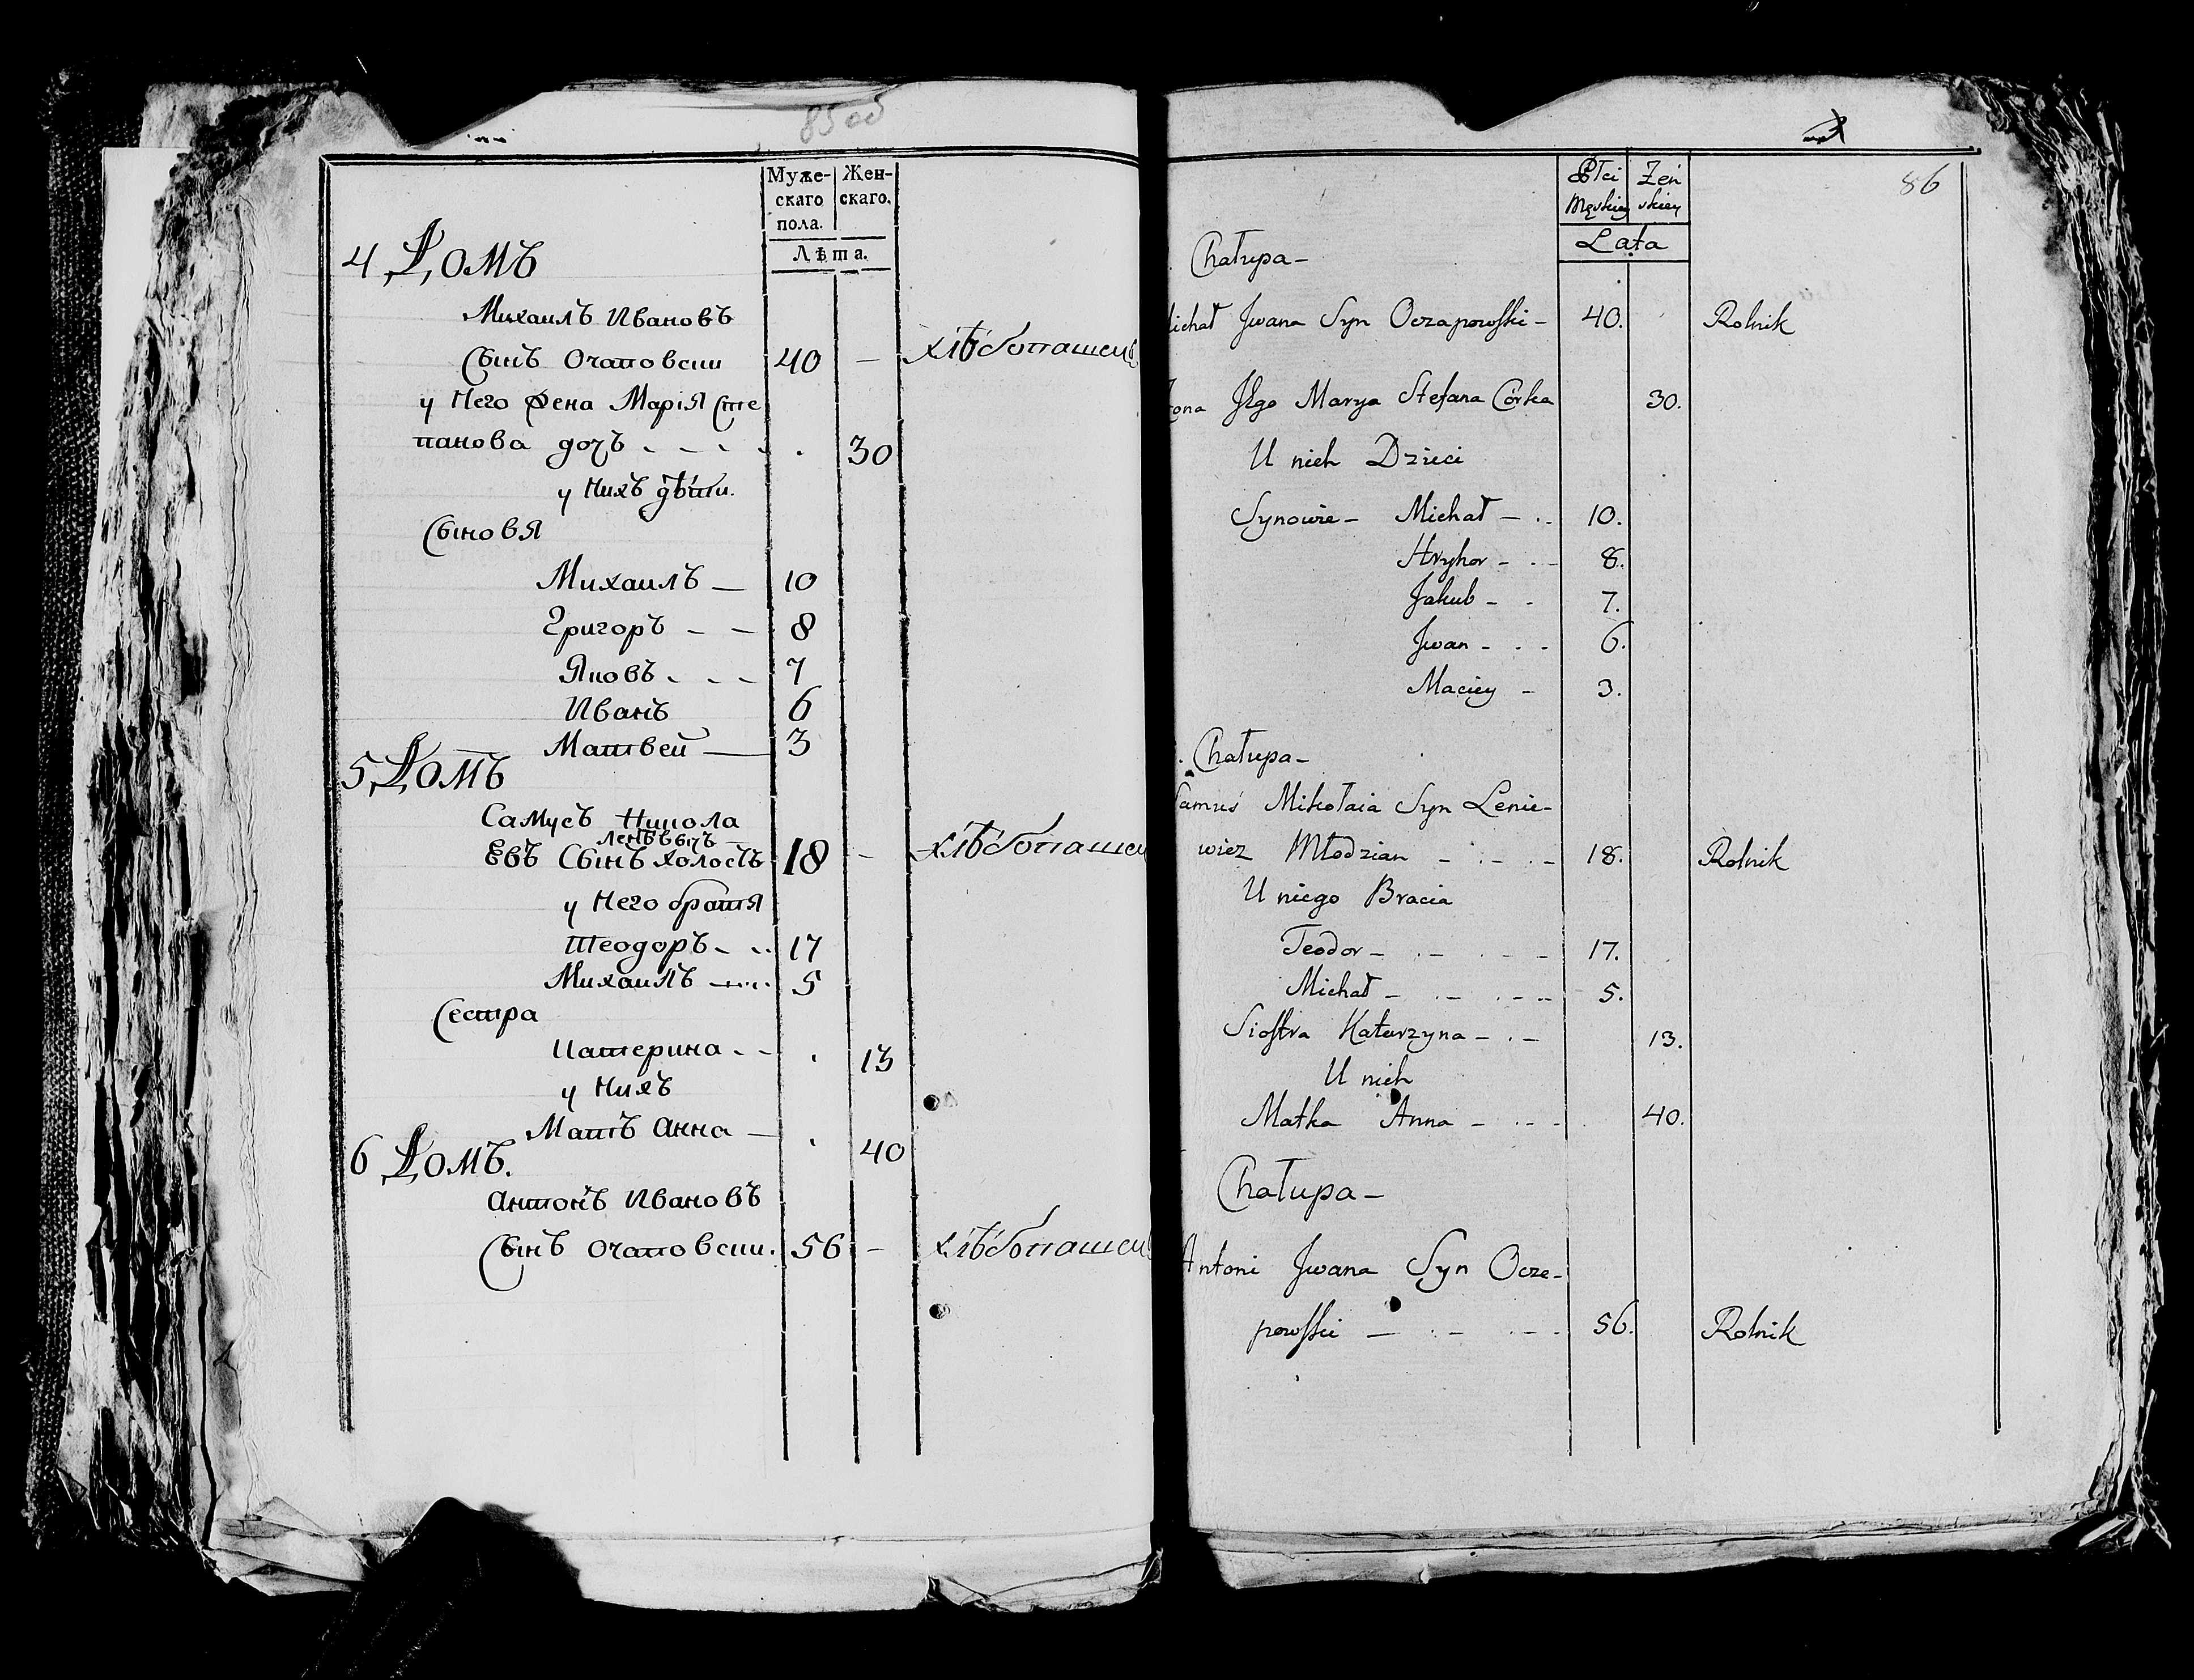 85 об
Муже-
скаго
пола.
Жен-
скаго.
Лѣта.
4 Домъ
Михаилъ Ивановъ
Сынъ Очаповски 40 — хлѣбопашецъ
у Него Жена Марія Сте
панова дочь - - - . 30
у Нихъ дѣти.
Сыновя
Михаилъ — 10
Григоръ - — 8
Яковъ - - - 7
Иванъ 6
Матвей — 3
5 Домъ
Самусь Никола
Ленѣвьвичъ
Евъ Сынъ холостъ 18 - хлѣбопашец
у Него братя
Теодоръ - .. 17
Михаилъ -.... 5
Сестра
Катерина - - . 13
у Нихъ
Мать Анна — . 40
6 Домъ.
Антонъ Ивановъ
Сынъ Очаповски. 56 - хлѣбопашец
86
Płci
Męskiey
Żeń
skiey
Lata
Chałupa -
Michał Jwana Syn Oczapowski - 40. Rolnik
Żona Jego Marya Stefana Córka 30.
U nich Dzieci
Synowie - Michał - .. 10.
Hryhor - . - 8.
Jakub - - 7.
Jwan - . - 6.
Maciey - 3.
Chałupa -
Samuś Mikołaia Syn Lenie-
wicz Młodzian - . - . - 18. Rolnik
U niego Bracia
Teodor - . - . - - 17.
Michał - . - . - - 5.
Siostra Katarzyna - . - 13.
U nich
Matka Anna - . - - 40.
Chałupa -
Antoni Jwana Syn Ocze-
powski — . - . - - 56. Rolnik